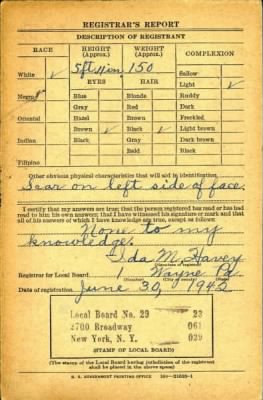 REGISTRAR'S REPORT
DESCRIPTION OF REGISTRANT
RACE HEIGHT (Approx.) WEIGHT (Approx.) COMPLEXION
5 ft 150
White ✓ EYES HAIR Sallow
Light ✓
Negro Blue Blonde Ruddy
Gray Red Dark
Oriental Hazel Brown Freckled
Brown ✓ Black ✓ Light brown
Indian Black Gray Dark brown
Bald Black
Filipino
Other obvious physical characteristics that will aid in identification
Scar on left side of face.
I certify that my answers are true; that the person registered has read or has
read to him his own answers; that I have witnessed his signature or mark and that
all of his answers of which I have knowledge are true, except as follows:
None to my
knowledge.
Ida M. Havey
Registrar for Local Board 1 Wayne Pa.
Date of registration June 30, 1942
Local Board No. 29 23
2700 Broadway 061
New York, N. Y. 029
(STAMP OF LOCAL BOARD)
(The stamp of the Local Board having jurisdiction of the registrant
shall be placed in the above space)
U. S. GOVERNMENT PRINTING OFFICE